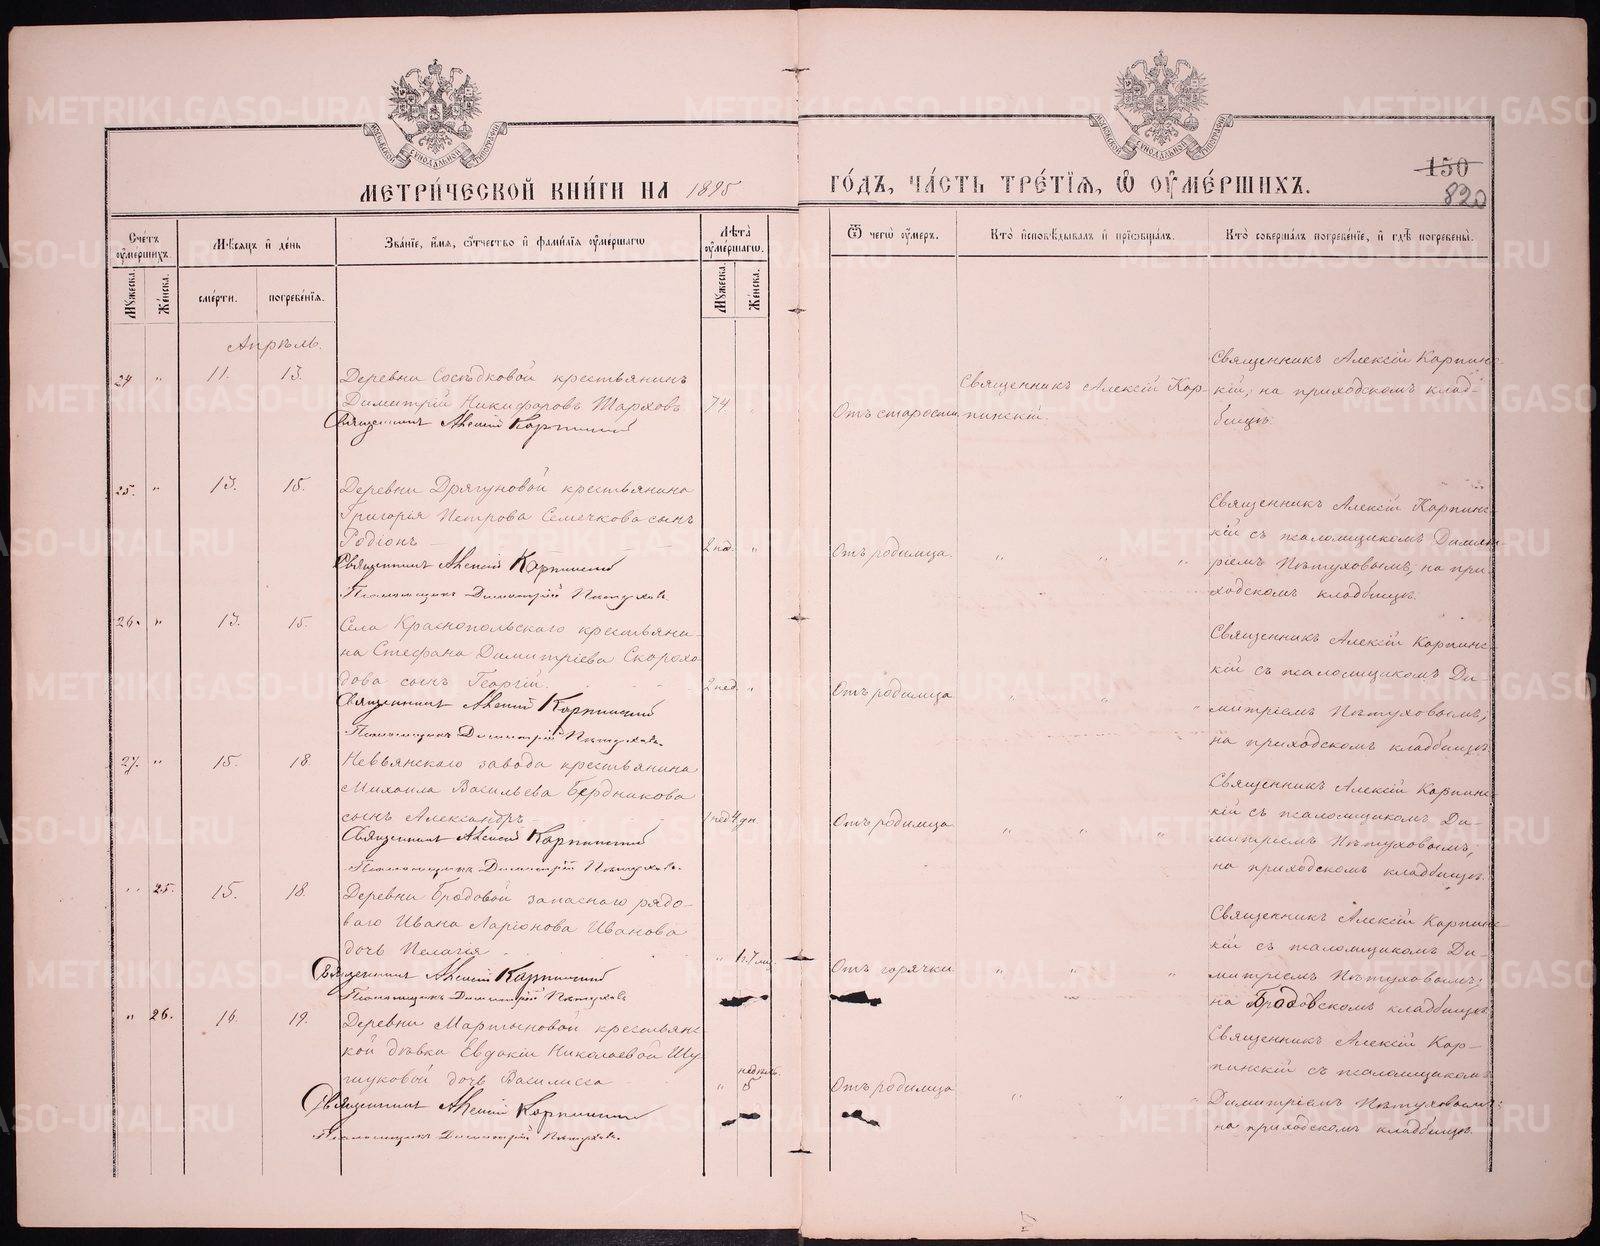 МЕТРИ́ЧЕСКОЙ КНИ́ГИ НА 1895
ГО́ДЪ, ЧА́СТЬ ТРЕ́ТІѦ, Ѿ ОУМЕ́РШИХЪ.
150
820
Сче́тъ оумершихъ.
Мужеска.
Же́нска.
Мѣсяцъ и де́нь
сме́рти.
погребе́нія.
Зва́ніе, и́мя, о́тчество и фами́лія оуме́ршагѡ
Лѣта̀ оуме́ршагѡ.
Мужеска.
Же́нска.
Ѿ чегѡ̀ оу́меръ.
Кто̀ исповѣ́дывалъ и прїобща́лъ.
Кто̀ соверша́лъ погребе́нїе, и гдѣ̀ погребены̀.
Апрѣль.
24 " 11. 13.
Деревни Сосѣдковой крестьянинъ
Димитрій Никифоровъ Шарховъ
74.
Священникъ Алексій Карпинскій
Отъ старости
Священникъ Алексій Кар-
пинскій.
Священникъ Алексій Карпинс-
кій, на приходскомъ клад-
бищѣ.
25. " 13. 15.
Деревни Дрягуновой крестьянина
Григорія Петрова Семечкова сынъ
Родіонъ
2 нед. "
Священникъ Алексій Карпинскій
Псаломщикъ Димитрій Пѣтуховъ
Отъ родимца
" " "
Священникъ Алексій Карпинс-
кій съ псаломщикомъ Димит-
ріемъ Пѣтуховымъ, на при-
ходскомъ кладбищѣ.
26. " 13. 15.
Села Краснопольскаго крестьяни-
на Стефана Димитріева Скорохо
дова сынъ Георгій
2 нед. "
Священникъ Алексій Карпинскій
Псаломщикъ Димитрій Пѣтуховъ.
Отъ родимца
" " "
Священникъ Алексій Карпинс-
кій съ псаломщикомъ Ди-
митріемъ Пѣтуховымъ,
на приходскомъ кладбищѣ
27. " 15. 18.
Невьянскаго завода крестьянина
Михаила Васильева Бердникова
сынъ Александръ
1 нед 4 дн.
Священникъ Алексій Карпинскій
Псаломщикъ Димитрій Пѣтуховъ.
Отъ родимца
" " "
Священникъ Алексій Карпинс-
кій съ псаломщикомъ Ди-
митріемъ Пѣтуховымъ,
на приходскомъ кладбищѣ.
" 25. 15. 18.
Деревни Бродовой запаснаго рядо-
ваго Ивана Ларіонова Иванова
дочь Пелагія
Священникъ Алексій Карпинскій
Псаломщикъ Димитрій Пѣтуховъ
Отъ горячки
" " "
Священникъ Алексій Карпинс-
кій съ псаломщикомъ Ди-
митріемъ Пѣтуховымъ,
на Бродовскомъ кладбищѣ
" 26. 16. 19.
Деревни Мартыновой крестьянс-
кой дѣвки Евдокіи Николаевой Шу
дочь Василисса
" недѣль. 5
Священникъ Алексій Карпинскій
Псаломщикъ Димитрій Пѣтуховъ.
Отъ родимца
" " "
Священникъ Алексій Кар-
пинскій съ псаломщикомъ
Димитріемъ Пѣтуховымъ,
на приходскомъ кладбищѣ.